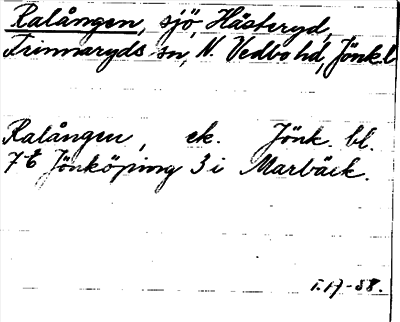 Ralången, sjö, Hästeryd,
Frinnaryds sn, N. Vedbo hd, Jönk.l
Ralången, ek. Jönk. bl.
7E Jönköping 3 i Marbäck.
58.